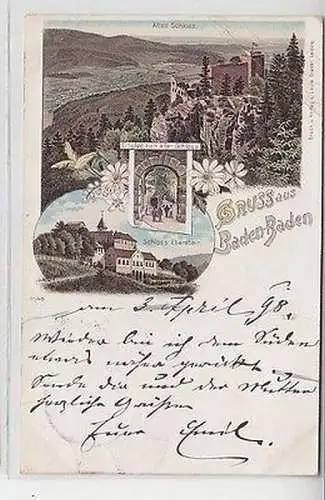 Altes Schloss.
Eingang zum alten Schloss
Gruss aus
Baden-Baden
Schloss Eberstein
am 3. April 98.
Wieder bin ich dem Süden
etwas näher gerückt.
Sende dir und der Mutter
herzliche Grüße
Euer Emil.